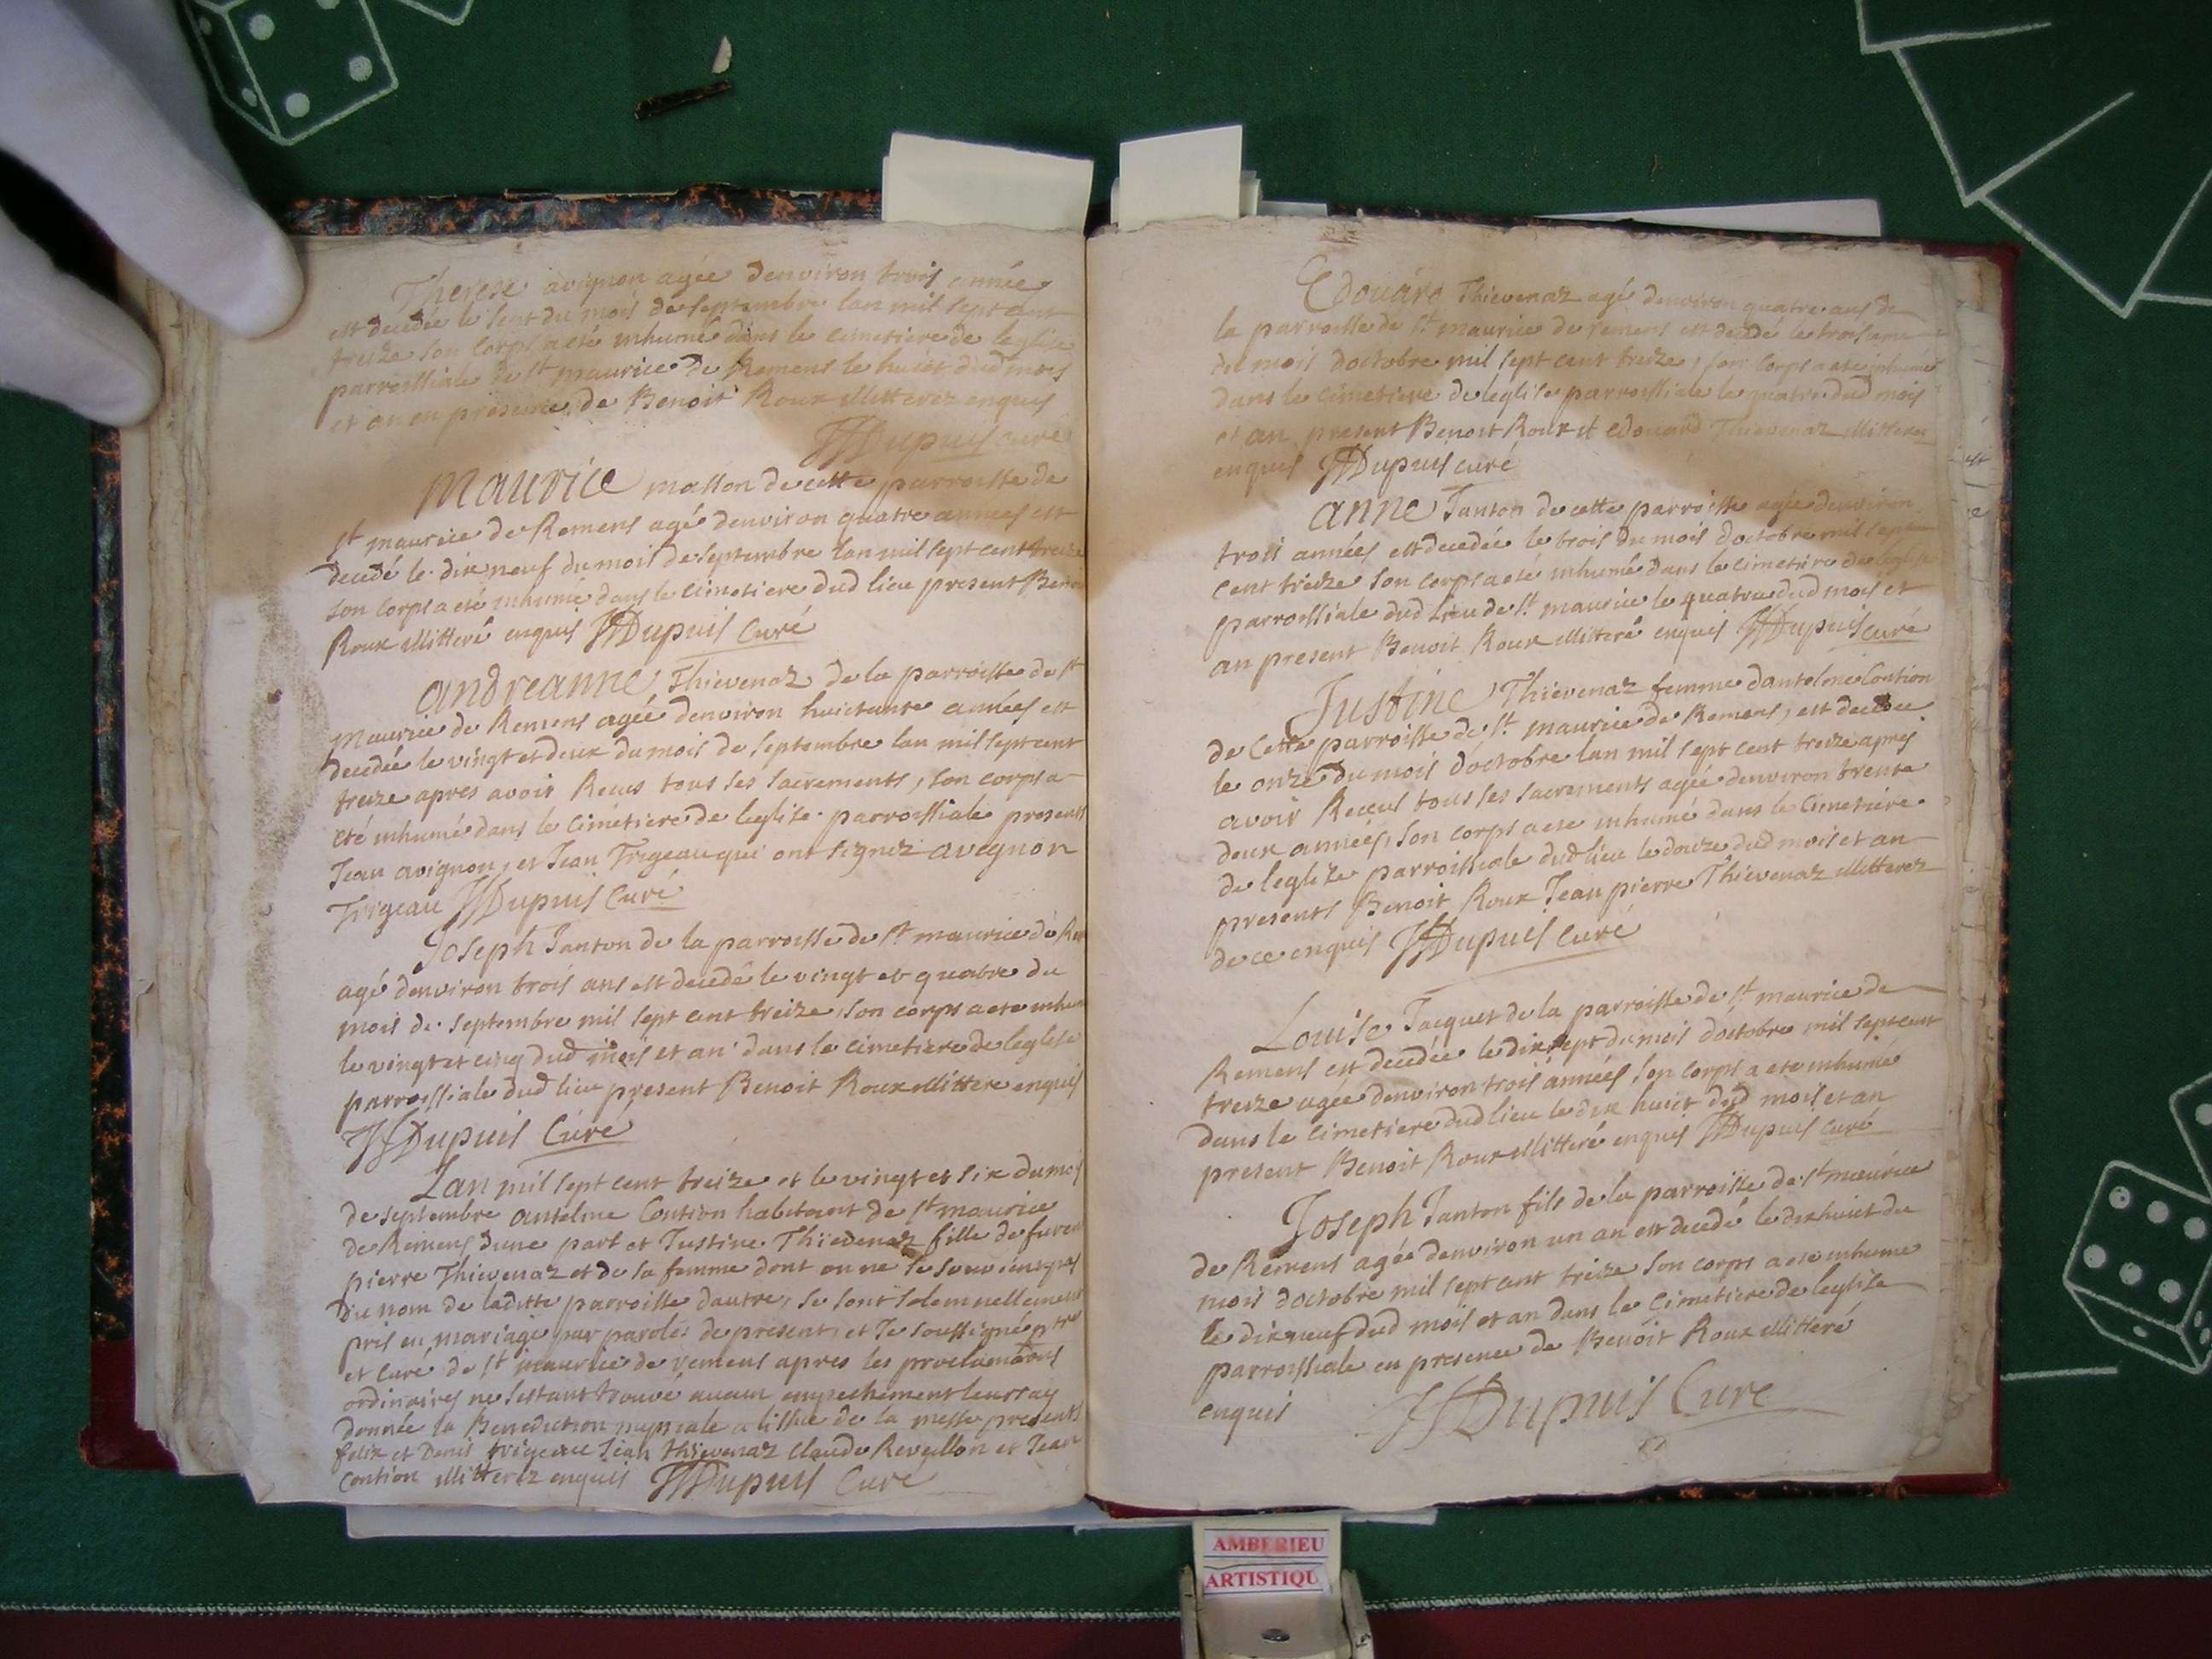 Therese avignon agée denviron trois année
est decedée le sept du mois de septembre lan mil sept cent
treize son corps a eté inhumé dans le cimetiere de leglise
parroissiale de st maurice de Remens le huict dud mois
et an en presence de Benoit Roux illitterez enquis
JJDupuis curé
Maurice masson de cette parroisse de
st maurice de Remens agé denviron quatre années est
decedé le dix neuf du mois de septembre lan mil sept cent treize
son corps a eté inhumé dans le cimetiere dud lieu present Beno
Roux illitteré enquis JJDupuis Curé
andreanne Thievenaz de la parroisse de st
Maurice de Remens agée denviron huictante années est
decedée le vingt et deux du mois de septembre lan mil sept cent
treize apres avoir Receus tous ses sacrements, son corps a
eté inhumé dans le cimetiere de leglise parroissiale presents
Jean avignon, et Jean Trigeau qui ont signez avignon
Trigeau JJDupuis Curé
Joseph Janton de la parroisse de st maurice de Re
agé denviron trois ans est decedé le vingt et quatre du
mois de septembre mil sept cent treize son corps a ete inhu
le vingt et cinq dud mois et an dans le cimetiere de leglise
parroissiale dud lieu present Benoit Roux illittere enquis
JJDupuis Curé
Lan mil sept cent treize et le vingt et six du mois
de septembre antelme Contion habitant de st maurice
de Remens dune part et Justine Thievenaz fille de
pierre Thievenaz et de sa femme dont on ne se souvient pas
du nom de laditte parroisse dautre, se sont solemnellement
pris en mariage par paroles de present, et Je soussigné ptre
et Curé de st maurice de remens apres les proclamations
ordinaires ne sestant trouvé aucun empechement leurs ay
donnée la Benediction nuptiale a lissue de la messe presents
felix et Denis trigeau Jean thievenaz Claude Revellon et Jean
Contion illitterez enquis JJDupuis Curé
Edouard Thievenaz agé denviron quatre ans de
la parroisse de st maurice de remens est decedé le troisieme
du mois doctobre mil sept cent treize, son corps a ete inhumé
dans le cimetiere de leglise parroissiale le quatre dud mois
et an present Benoit Roux et edouard Thievenaz illitterez
enquis JJDupuis curé
anne Janton de cette parroisse agée denviron
trois années est decedée le trois du mois doctobre mil sept
cent treize son corps a ete inhumé dans le cimetiere de leglise
parroissiale dud Lieu de st maurice le quatre dud mois et
an present Benoit Roux illitteré enquis JJDupuis curé
Justine Thievenaz femme dantelme Contion
de cette parroisse de st maurice de Remens, est decedee
le onze du mois doctobre lan mil sept cent treize apres
avoir Receus tous ses sacrements agée denviron trente
deux années, son corps a ete inhumé dans le Cimetiere
de leglize parroissiale dud lieu le douze dud mois et an
presents Benoit Roux Jean pierre Thievenaz illitterez
de ce enquis JJDupuis Curé
Louise Jacquet de la parroisse de st maurice de
Remens est decedée le dix sept du mois doctobre mil sept cent
treize agée denviron trois années son corps a ete inhumé
dans le cimetiere dud lieu le dix huict dud mois et an
present Benoit Roux illitteré enquis JJDupuis curé
Joseph Janton fils de la parroisse de st maurice
de Remens agée denviron un an est decedé le dixhuict du
mois doctobre mil sept cent treize son corps a ete inhume
le dixneuf dud mois et an dans le Cimetiere de leglise
parroissiale en presence de Benoit Roux illitteré
enquis JJDupuis Curé
AMBERIEU
ARTISTIQU